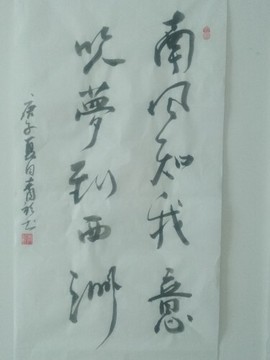 南风知我意
吹夢到西洲
庚子夏